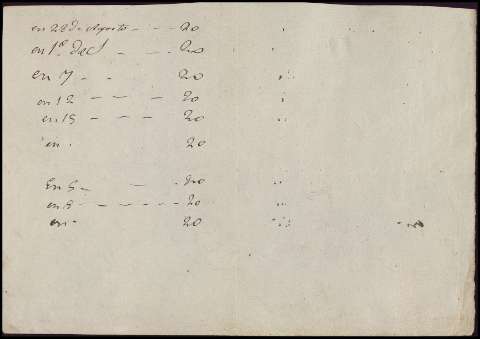 en 28 de Agosto - - - 20
en 1º de S - - - 20
en 7 - - 20
en 12 - - - 20
en 15 - - - 20
en . 20
En 5 - - - 20
en 8 - - - - - - 20
en - 20